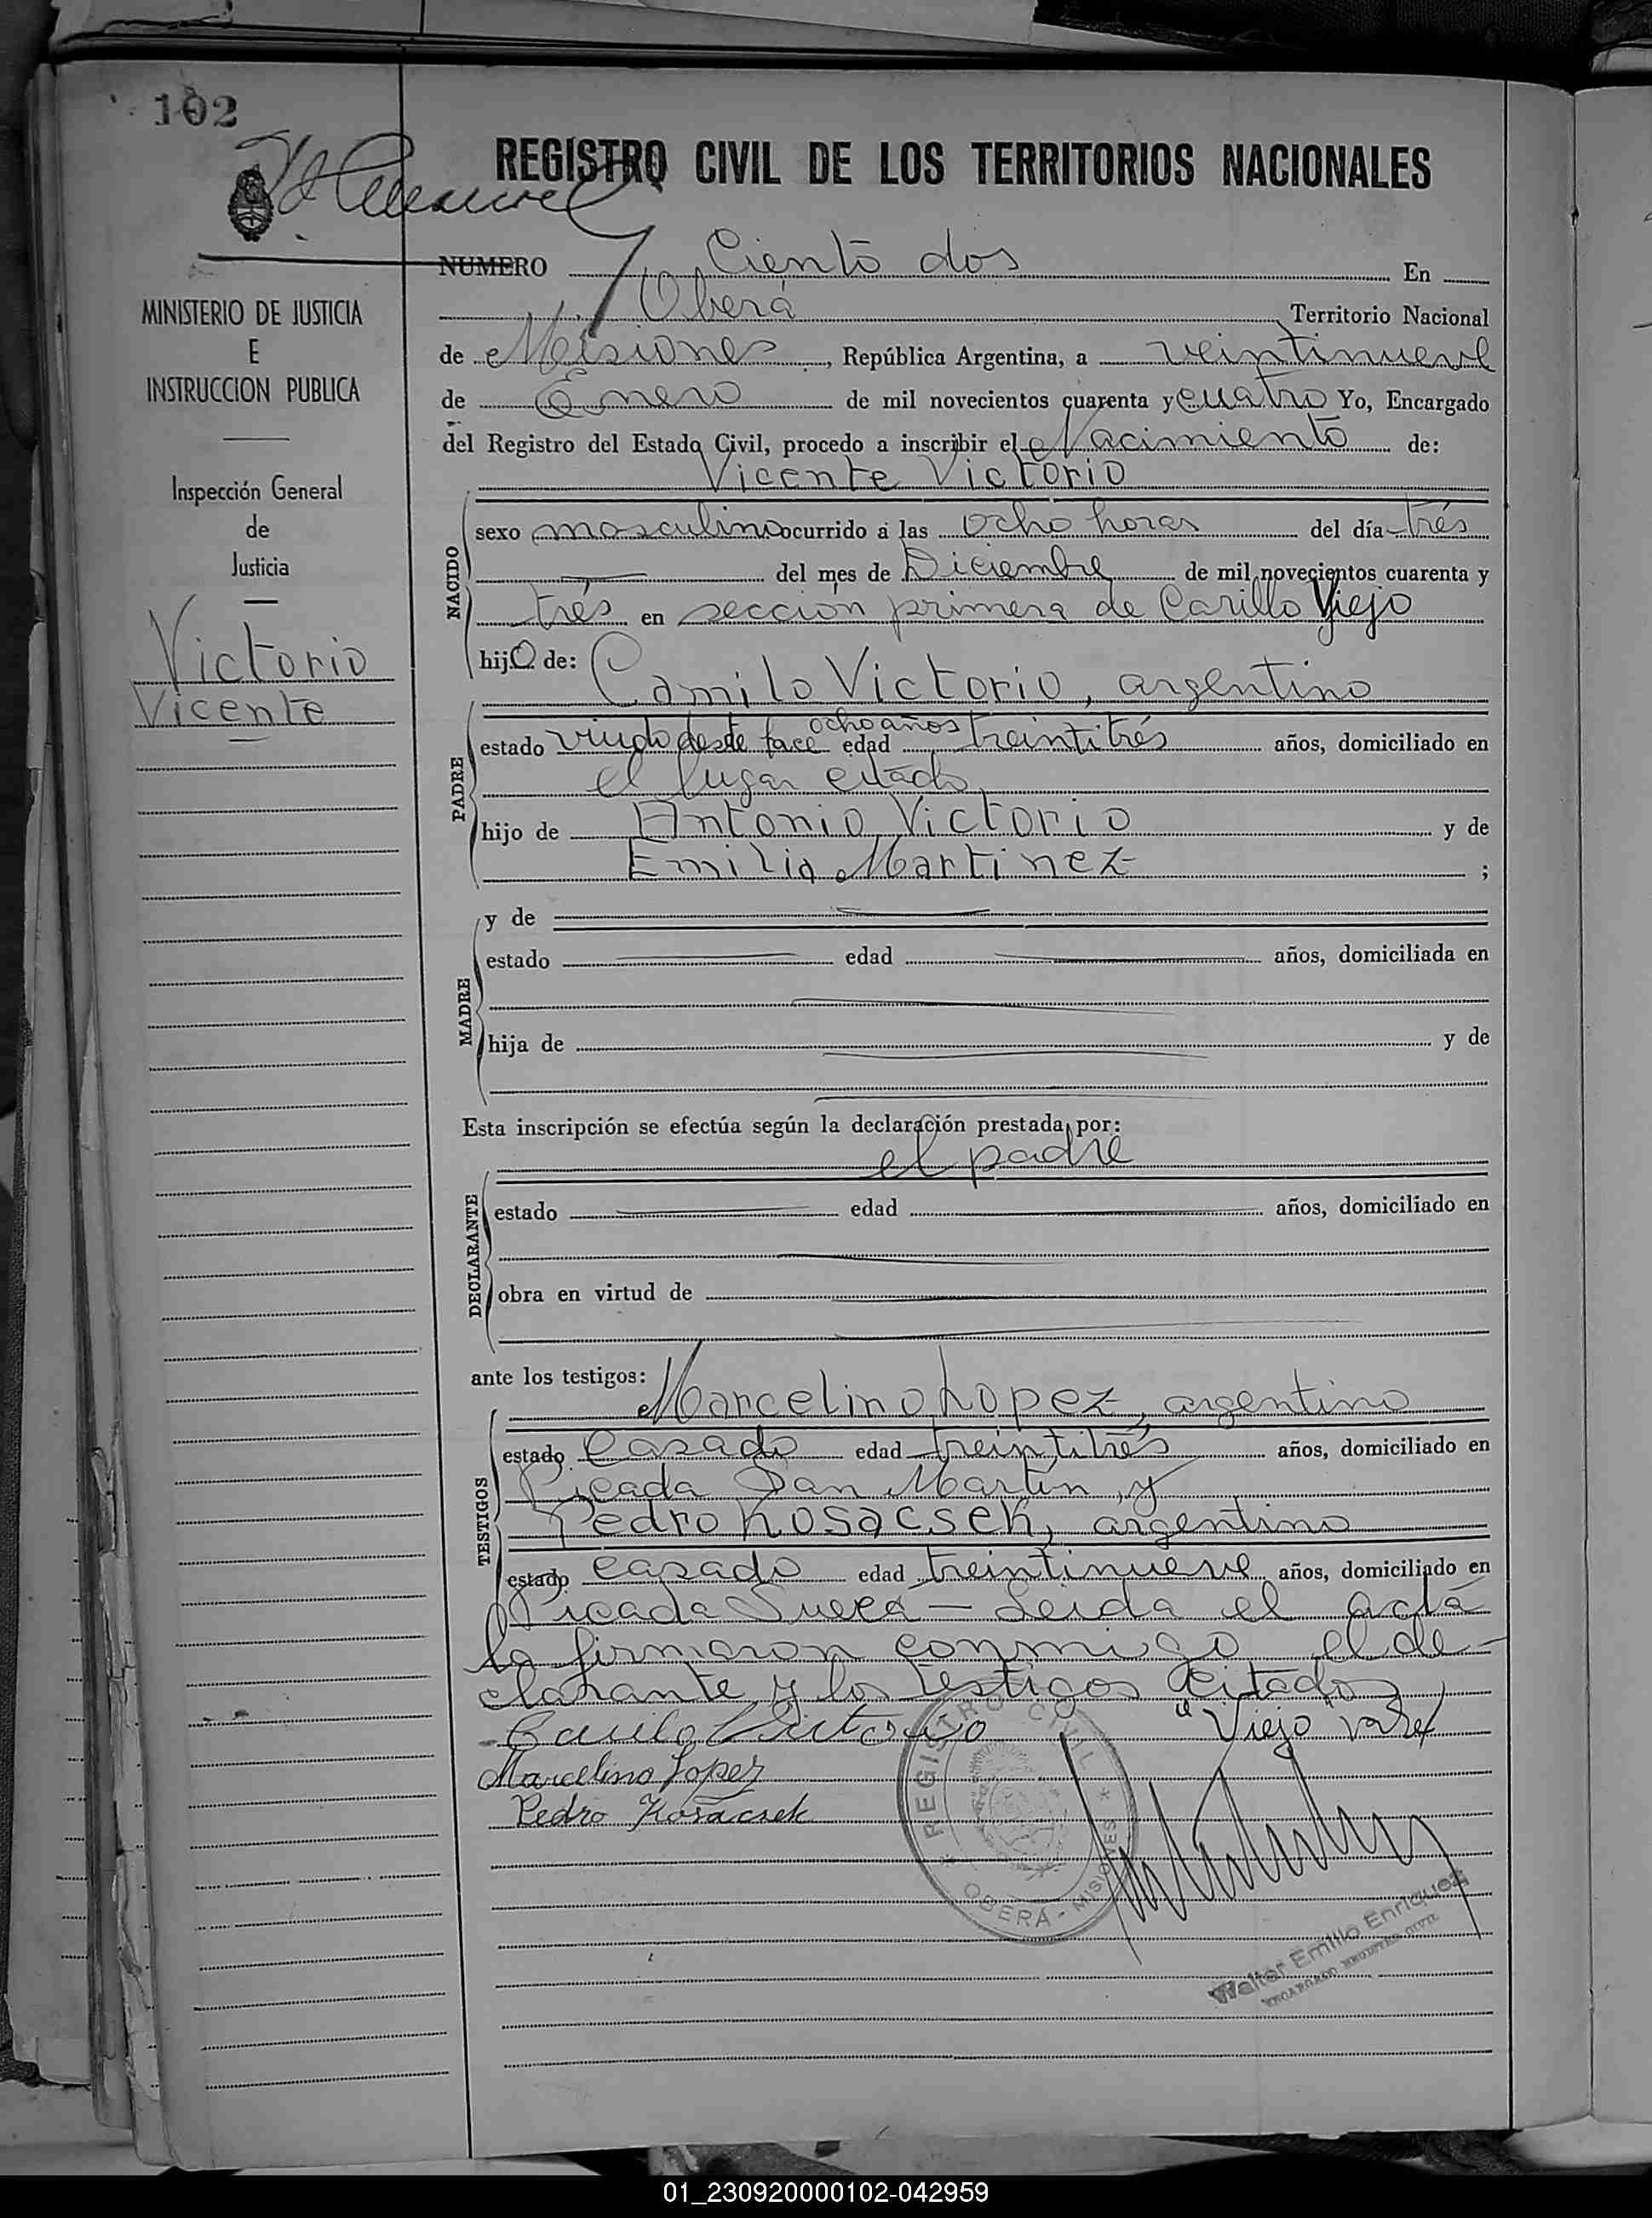 102
REGISTRO CIVIL DE LOS TERRITORIOS NACIONALES
MINISTERIO DE JUSTICIA
E
INSTRUCCION PUBLICA
Inspección General
de
Justicia
Victorio
Vicente
NUMERO Ciento dos En
Oberá Territorio Nacional
de Misiones, República Argentina, a veintinueve
de Enero de mil novecientos cuarenta y cuatro Yo, Encargado
del Registro del Estado Civil, procedo a inscribir el Nacimiento de:
Vicente Victorio
NACIDO
sexo masculino ocurrido a las ocho horas del día trés
del mes de Diciembre de mil novecientos cuarenta y
trés en sección primera de Carillo Viejo
hijo de:
Camilo Victorio, argentino
PADRE
ocho años
estado viudo desde face edad treintitrés años, domiciliado en
el lugar citado
hijo de Antonio Victorio y de
Emilia Martinez ;
MADRE
y de
estado edad años, domiciliada en
hija de y de
Esta inscripción se efectúa según la declaración prestada por:
el padre
DECLARANTE
estado edad años, domiciliado en
obra en virtud de
ante los testigos:
Marcelino Lopez, argentino
TESTIGOS
estado Casado edad treintitrés años, domiciliado en
Picada San Martin, y
Pedro Kosacsek, argentino
estado casado edad treintinueve años, domiciliado en
Picada Sueca — Leida el acta
la firmaron conmigo el de-
clarante y los testigos citados
Camilo Victorio "Viejo" vale
Marcelino Lopez
Pedro Kosacsek
* REGISTRO CIVIL *
OBERÁ - MISIONES
Walter Emilio Enriquez
ENCARGADO REGISTRO CIVIL
01_230920000102-042959